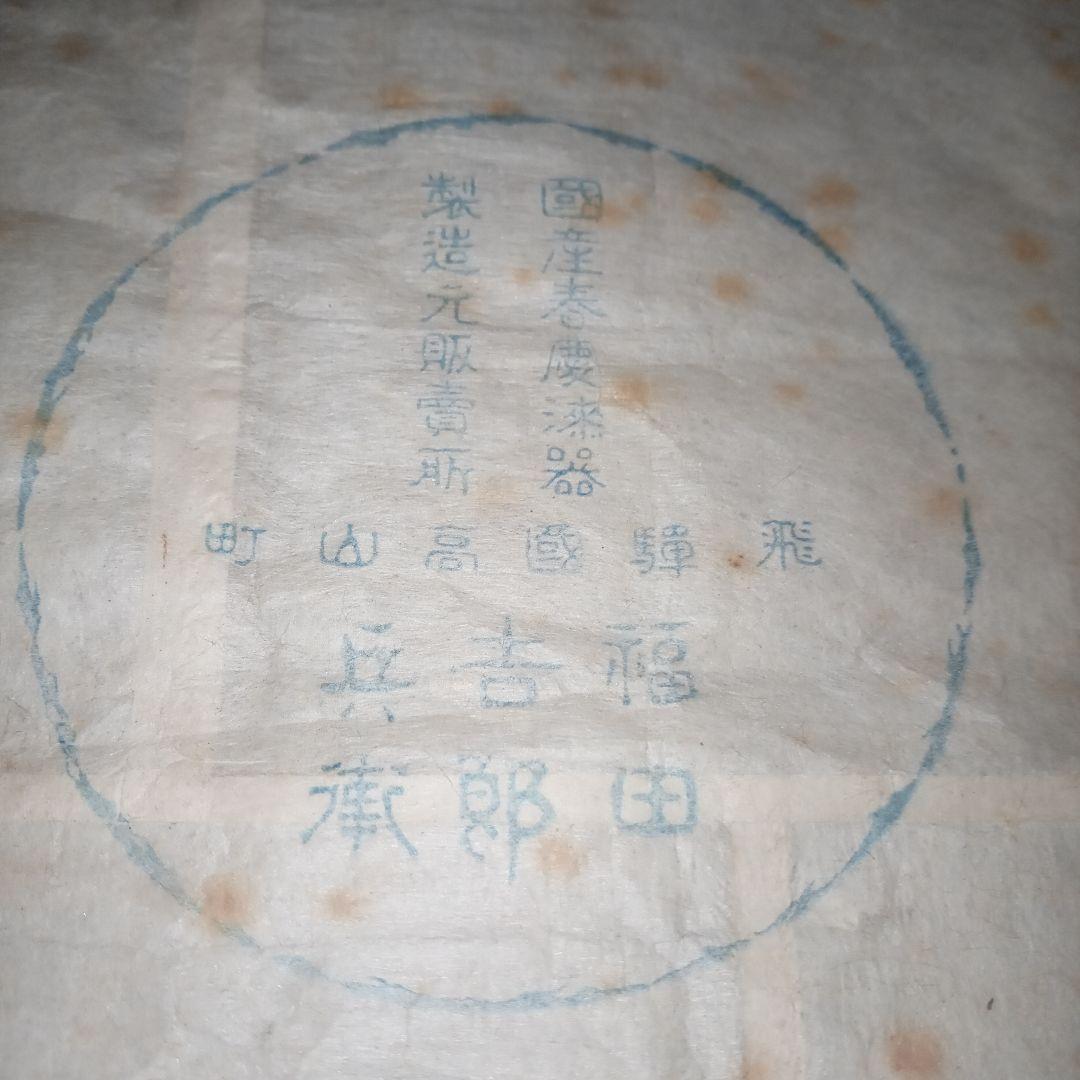 國産春慶漆器
製造元販賣所
飛驒國高山町
福田
吉郎
兵衛